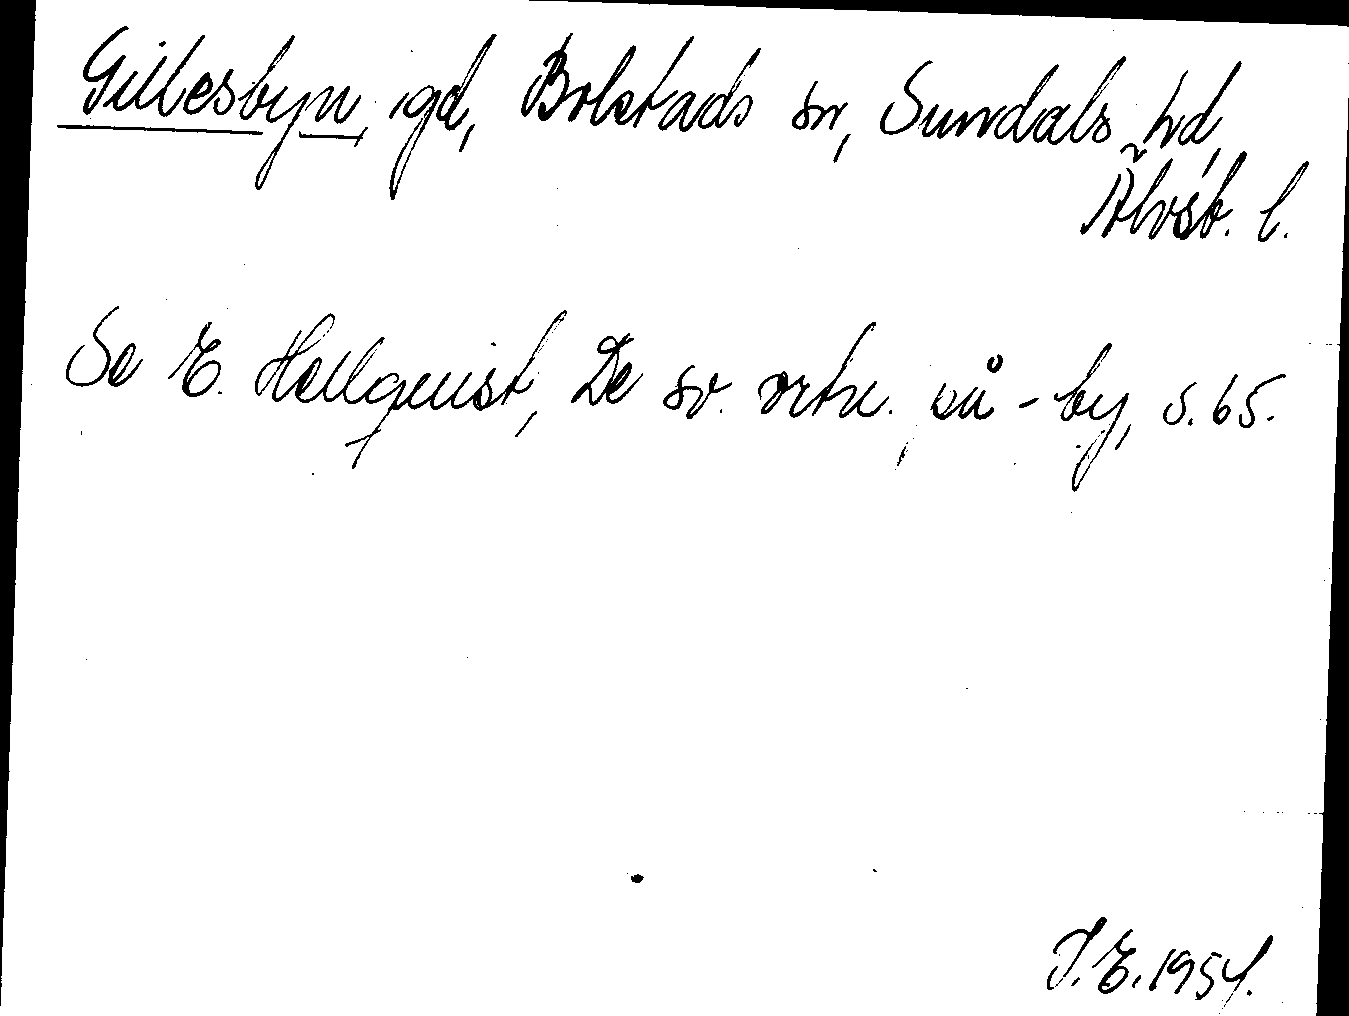 Gillesbyn, gd, Bolstads sn, Sundals hd,
Älvsb. l.
Se E. Hellquist, De sv. ortn. på -by, s. 65.
I.E. 1954.